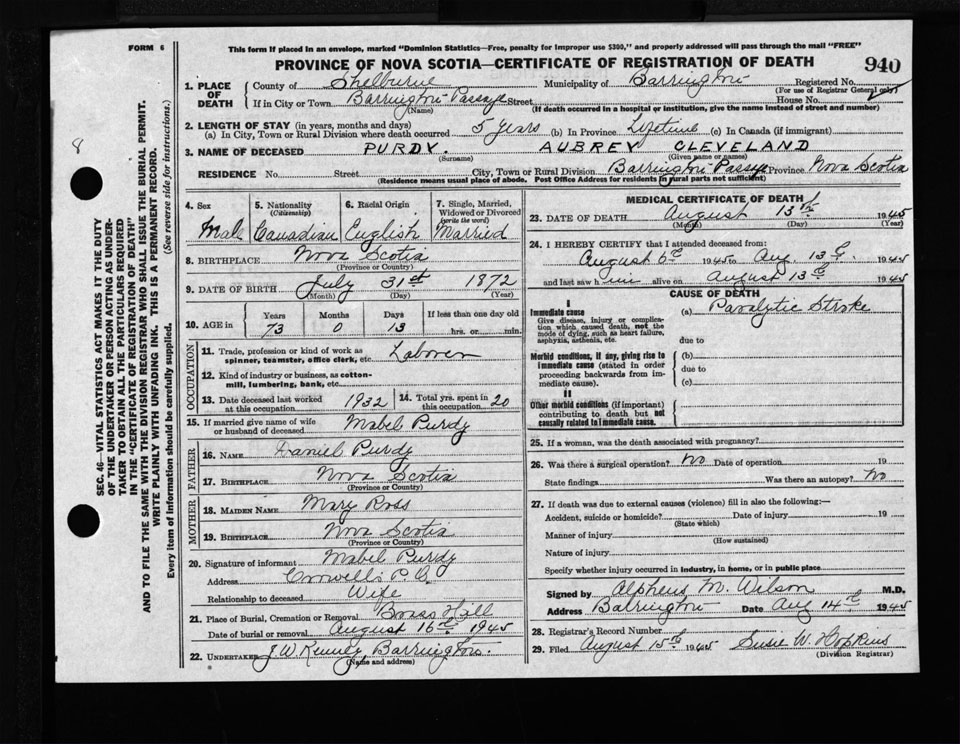 FORM 6
This form if placed in an envelope, marked "Dominion Statistics—Free, penalty for improper use $300," and properly addressed will pass through the mail "FREE"
PROVINCE OF NOVA SCOTIA—CERTIFICATE OF REGISTRATION OF DEATH
940
8
SEC. 46—VITAL STATISTICS ACT MAKES IT THE DUTY
OF THE UNDERTAKER OR PERSON ACTING AS UNDER-
TAKER TO OBTAIN ALL THE PARTICULARS REQUIRED
IN THE "CERTIFICATE OF REGISTRATION OF DEATH"
AND TO FILE THE SAME WITH THE DIVISION REGISTRAR WHO SHALL ISSUE THE BURIAL PERMIT.
WRITE PLAINLY WITH UNFADING INK. THIS IS A PERMANENT RECORD.
Every item of information should be carefully supplied. (See reverse side for instructions.)
1. PLACE OF DEATH
County of Shelburne Municipality of Barrington Registered No.
(For use of Registrar General only)
If in City or Town Barrington Passage Street House No.
(Name) (If death occurred in a hospital or institution, give the name instead of street and number)
2. LENGTH OF STAY (in years, months and days)
(a) In City, Town or Rural Division where death occurred 5 years (b) In Province Lifetime (c) In Canada (if immigrant)
3. NAME OF DECEASED PURDY. AUBREY CLEVELAND
(Surname) (Given name or names)
RESIDENCE No. Street City, Town or Rural Division Barrington Passage Province Nova Scotia
(Residence means usual place of abode. Post Office Address for residents in rural parts not sufficient)
4. Sex 5. Nationality (Citizenship) 6. Racial Origin 7. Single, Married, Widowed or Divorced (write the word)
Male Canadian English Married
8. BIRTHPLACE Nova Scotia
(Province or Country)
9. DATE OF BIRTH July 31st 1872
(Month) (Day) (Year)
10. AGE IN Years Months Days If less than one day old
73 0 13 hrs. or min.
OCCUPATION
11. Trade, profession or kind of work as spinner, teamster, office clerk, etc. Laborer
12. Kind of industry or business, as cotton-mill, lumbering, bank, etc.
13. Date deceased last worked at this occupation 1932 14. Total yrs. spent in this occupation 20
15. If married give name of wife or husband of deceased Mabel Purdy
FATHER
16. NAME Daniel Purdy
17. BIRTHPLACE Nova Scotia
(Province or Country)
MOTHER
18. MAIDEN NAME Mary Ross
19. BIRTHPLACE Nova Scotia
(Province or Country)
20. Signature of informant Mabel Purdy
Address P.O.
Relationship to deceased Wife
21. Place of Burial, Cremation or Removal Hill
Date of burial or removal August 16th 1945
22. UNDERTAKER J.W. Kenney Barrington
(Name and address)
MEDICAL CERTIFICATE OF DEATH
23. DATE OF DEATH August 13th 1945
(Month) (Day) (Year)
24. I HEREBY CERTIFY that I attended deceased from:
August 6th 1945 to Aug. 13th 1945
and last saw him alive on August 13th 1945
CAUSE OF DEATH
I
Immediate cause
Give disease, injury or complication which caused death, not the mode of dying, such as heart failure, asphyxia, asthenia, etc.
(a) Paralytic Stroke
due to
Morbid conditions, if any, giving rise to immediate cause (stated in order proceeding backwards from immediate cause).
(b)
due to
(c)
II
Other morbid conditions (if important) contributing to death but not causally related to immediate cause.
25. If a woman, was the death associated with pregnancy?
26. Was there a surgical operation? No Date of operation 19
State findings Was there an autopsy? No
27. If death was due to external causes (violence) fill in also the following:—
Accident, suicide or homicide? Date of injury 19
(State which)
Manner of injury
(How sustained)
Nature of injury
Specify whether injury occurred in industry, in home, or in public place
Signed by Alpheus M. Wilson M.D.
Address Barrington Date Aug 14th 1945
28. Registrar's Record Number
29. Filed August 15th 1945 Susie W. Hopkins
(Division Registrar)